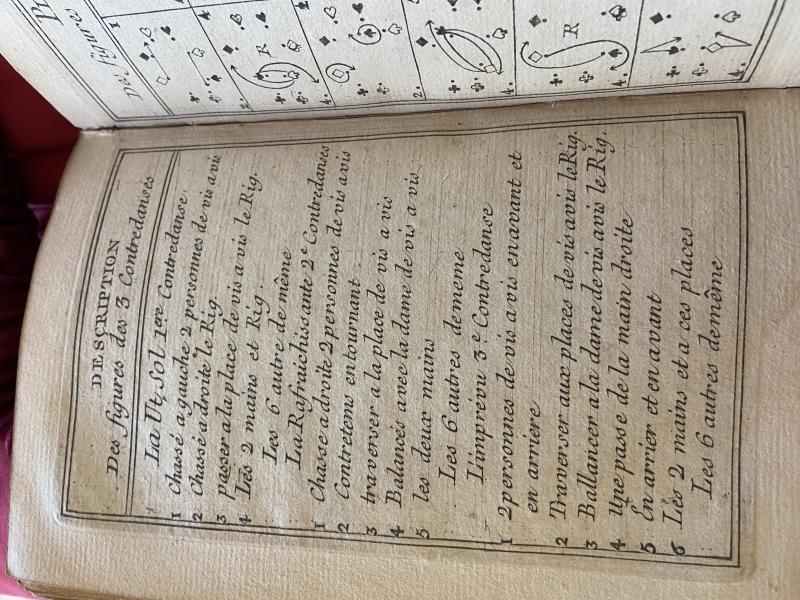 DESCRIPTION
Des figures des 3 Contredanses
La Ut, Sol 1ere Contredanse.
1 Chassé a gauche 2 personnes de vis a vis
2 Chassé a droite le Rig.
3 passer a la place de vis a vis le Rig.
4 Les 2 mains et Rig.
Les 6 autre de même
La Rafraichissante 2e Contredanses
1 Chasse a droite 2 personnes de vis a vis
2 Contretems en tournant
3 traverser a la place de vis a vis
4 Balancés avec la dame de vis a vis
5 les deux mains
Les 6 autres de meme
L'imprévu 3e Contredanse
1 2 personnes de vis a vis en avant et
en arriere
2 Traverser aux places de vis avis le Rig.
3 Ballancer a la dame de vis avis le Rig.
4 Une passe de la main droite
5 En arrier et en avant
6 Les 2 mains et a ces places
Les 6 autres de même
Des figures
1
2.
R
4.
2.
4.
R
4.